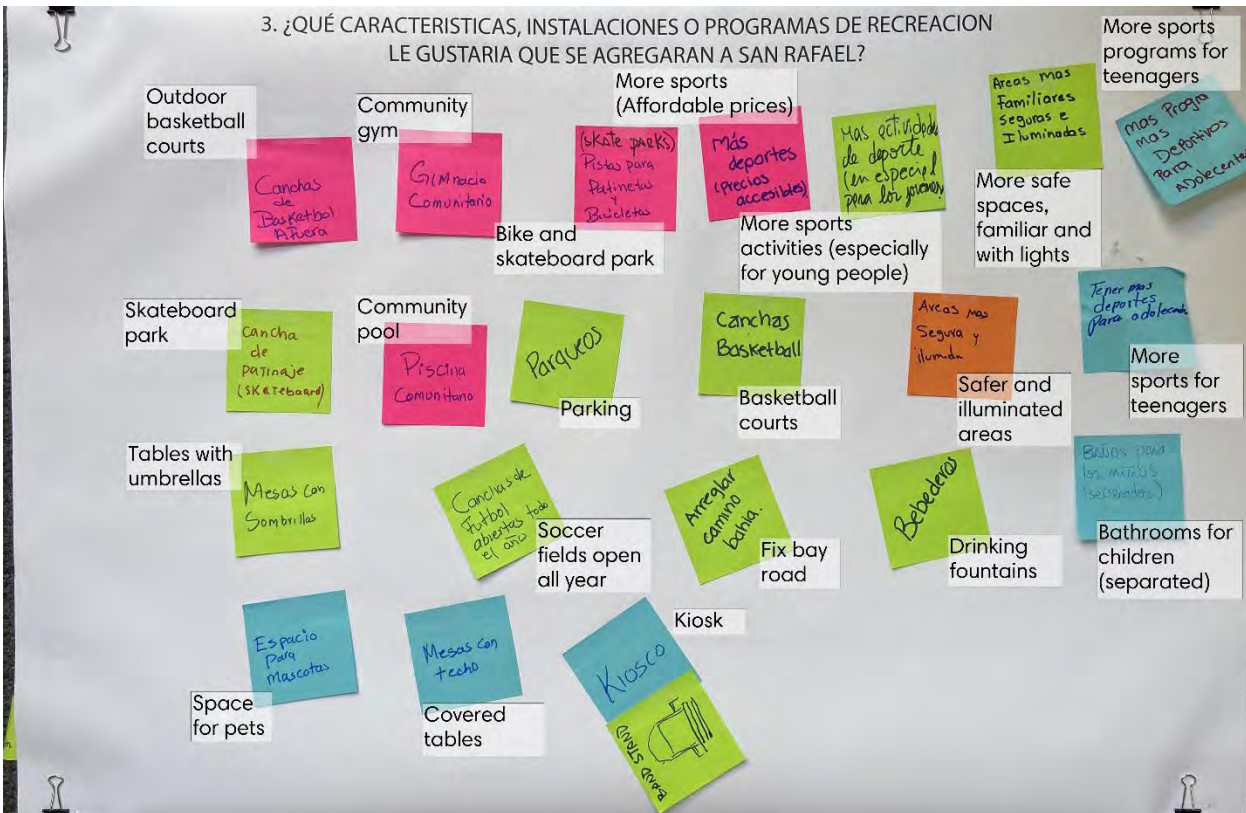 3. ¿QUÉ CARACTERISTICAS, INSTALACIONES O PROGRAMAS DE RECREACION
LE GUSTARIA QUE SE AGREGARAN A SAN RAFAEL?
Outdoor
basketball
courts
Canchas
de
Basketbol
Afuera
Community
gym
Gimnacio
Comunitario
(SKATE PARKS)
Pistas para
Patinetas
y
Bicicletas
Bike and
skateboard park
More sports
(Affordable prices)
Más
deportes
(precios
accesibles)
Mas actividades
de deporte
(en especial
para los jovenes)
More sports
activities (especially
for young people)
Areas mas
Familiares
Seguras e
Iluminadas
More safe
spaces,
familiar and
with lights
More sports
programs for
teenagers
mas Progra
mas
Deportivos
Para
Adolecentes
Skateboard
park
Cancha
de
Patinaje
(Skateboard)
Community
pool
Piscina
Comunitario
Parqueos
Parking
Canchas
Basketball
Basketball
courts
Areas mas
Segura y
ilumida
Safer and
illuminated
areas
Tener mas
deportes
para adolecente
More
sports for
teenagers
Tables with
umbrellas
Mesas con
Sombrillas
Canchas de
Futbol
abiertas todo
el año
Soccer
fields open
all year
Arreglar
camino
bahia.
Fix bay
road
Bebederos
Drinking
fountains
Baños para
los niños
(separados)
Bathrooms for
children
(separated)
Espacio
para
mascotas
Space
for pets
Mesas con
techo
Covered
tables
Kiosk
Kiosco
BAND STAND